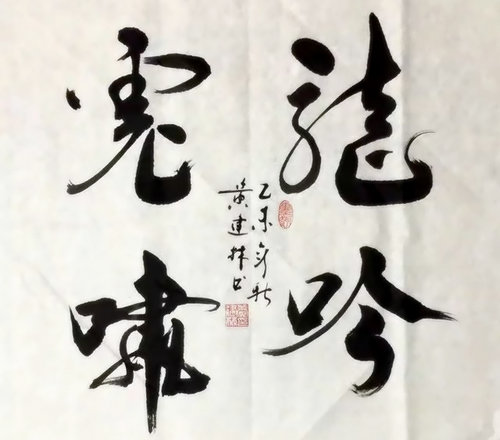 龍吟
虎嘯
乙未年秋
黄建林书